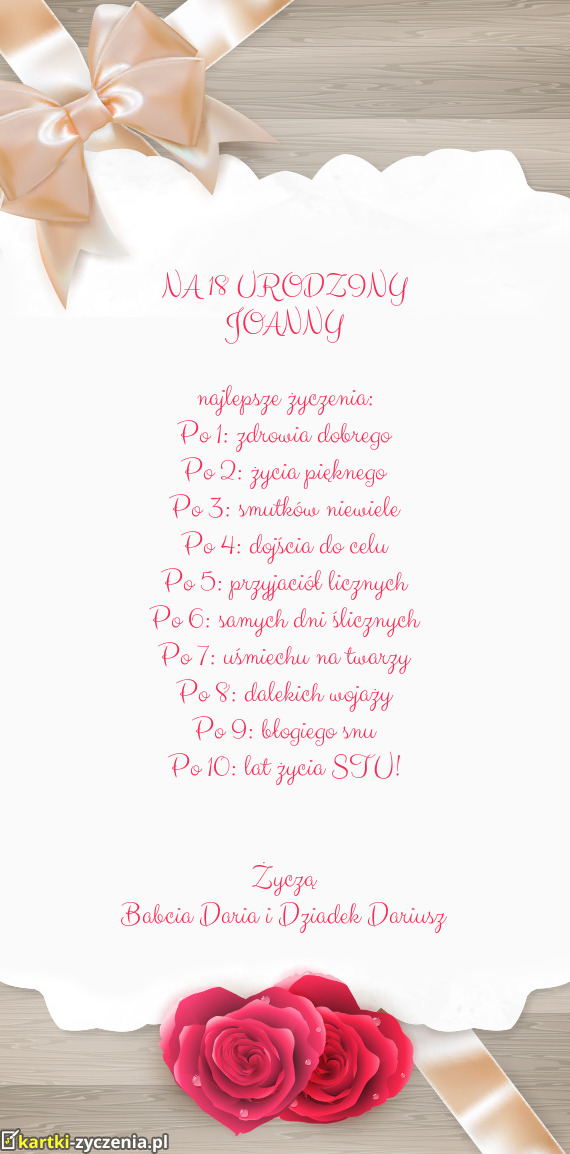 NA 18 URODZINY
JOANNY
najlepsze życzenia:
Po 1: zdrowia dobrego
Po 2: życia pięknego
Po 3: smutków niewiele
Po 4: dojścia do celu
Po 5: przyjaciół licznych
Po 6: samych dni ślicznych
Po 7: uśmiechu na twarzy
Po 8: dalekich wojaży
Po 9: błogiego snu
Po 10: lat życia STU!
Życzą
Babcia Daria i Dziadek Dariusz
kartki-zyczenia.pl